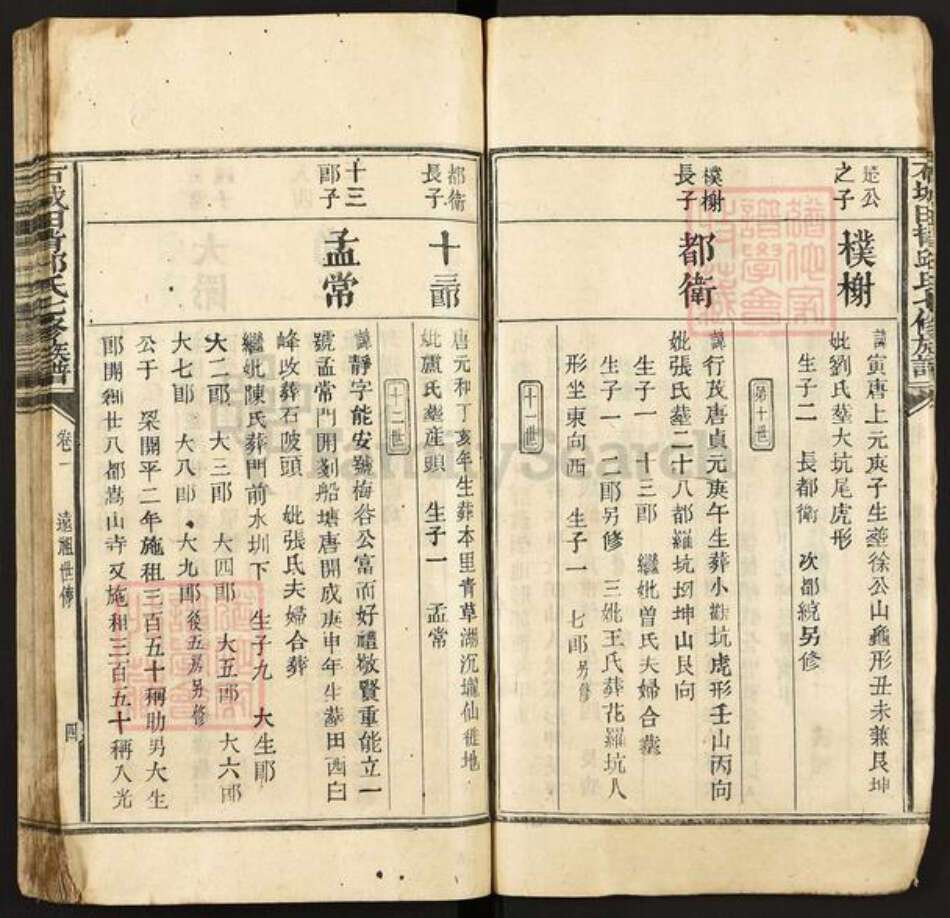 是公
之子
樸樕
諱寅唐上元庚子生塟徐公山龜形丑未兼艮坤
妣劉氏塟大坑尾虎形
生子二 長都衛 次都統另修
第十世
樸樕
長子
都衛
諱行茂唐貞元庚午生葬小坑虎形壬山丙向
妣張氏塟二十八都羅坑坳坤山艮向
生子一 十三郎 繼妣曾氏夫婦合塟
生子一 二郎另修 三妣王氏葬花羅坑人
形坐東向西 生子一 七郎另修
十一世
都衛
長子
十三郎
唐元和丁亥年生葬本里青草湖沉壠仙地
妣盧氏塟産頭 生子一 孟常
十二世
十三
郎子
孟常
諱靜字能安號梅谷公富而好禮敬賢重能立一
號孟常門開剗船塘唐開成庚申年生塟田西白
峰改葬石陂頭 妣張氏夫婦合葬
繼妣陳氏葬門前水圳下 生子九 大生郎
大二郎 大三郎 大四郎 大五郎 大六郎
大七郎 大八郎 大九郎後五房另修
公于 梁開平二年施租三百五十稱助男大生
郎開山廿八都嵩山寺又施租三百五十稱入光
卷一
遠祖世傳
四
FamilySearch